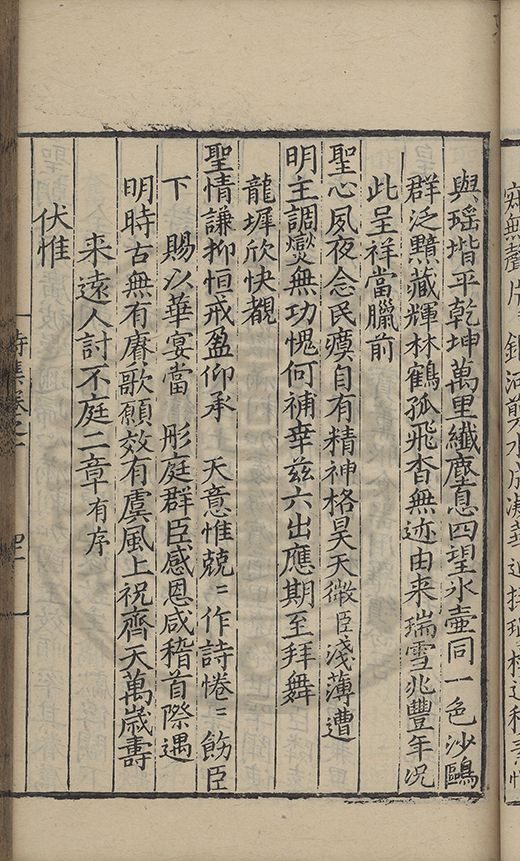 與瑶堦平乾坤萬里纖塵息四望氷壺同一色沙鷗
群泛黯藏輝林鶴孤飛杳無迹由来瑞雪兆豐年况
此呈祥當臘前
聖心夙夜念民瘼自有精神格昊天微臣淺薄遭
明主調爕無功愧何補幸兹六出應期至拜舞
龍墀欣快覩
聖情謙抑恒戒盈仰承 天意惟兢〻作詩惓〻飭臣
下 賜以華宴當 彤庭群臣感恩咸稽首際遇
明時古無有賡歌願效有虞風上祝齊天萬歲壽
来遠人討不庭二章有序
伏惟